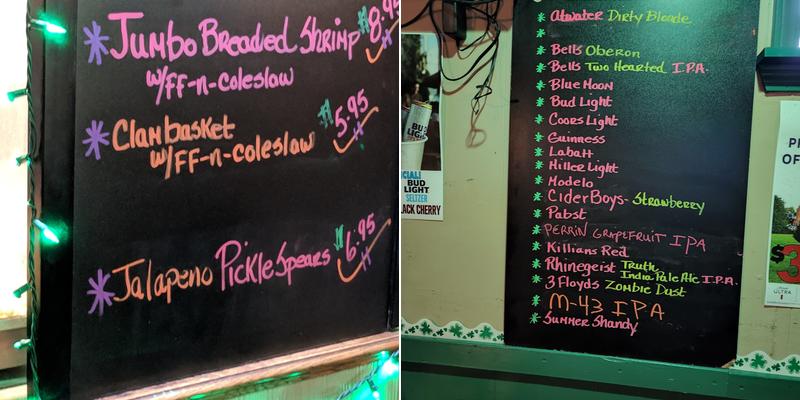 * Jumbo Breaded Shrimp $8.95
w/FF-n-coleslaw
* Clambasket $5.95
w/FF-n-coleslaw
* Jalapeno Pickle Spears $6.95
* Atwater Dirty Blonde
*
* Bells Oberon
* Bells Two Hearted I.P.A.
* Blue Moon
* Bud Light
* Coors Light
* Guinness
* Labatt
* Miller Light
* Modelo
* CiderBoys- Strawberry
* Pabst
* PERRIN GRAPEFRUIT IPA
* Killians Red
* Rhinegeist Truth
India Pale Ale I.P.A.
* 3 Floyds Zombie Dust
* M-43 IPA
* Summer Shandy
BUD
LIGHT
BUD
LIGHT
SELTZER
BLACK CHERRY
ULTRA